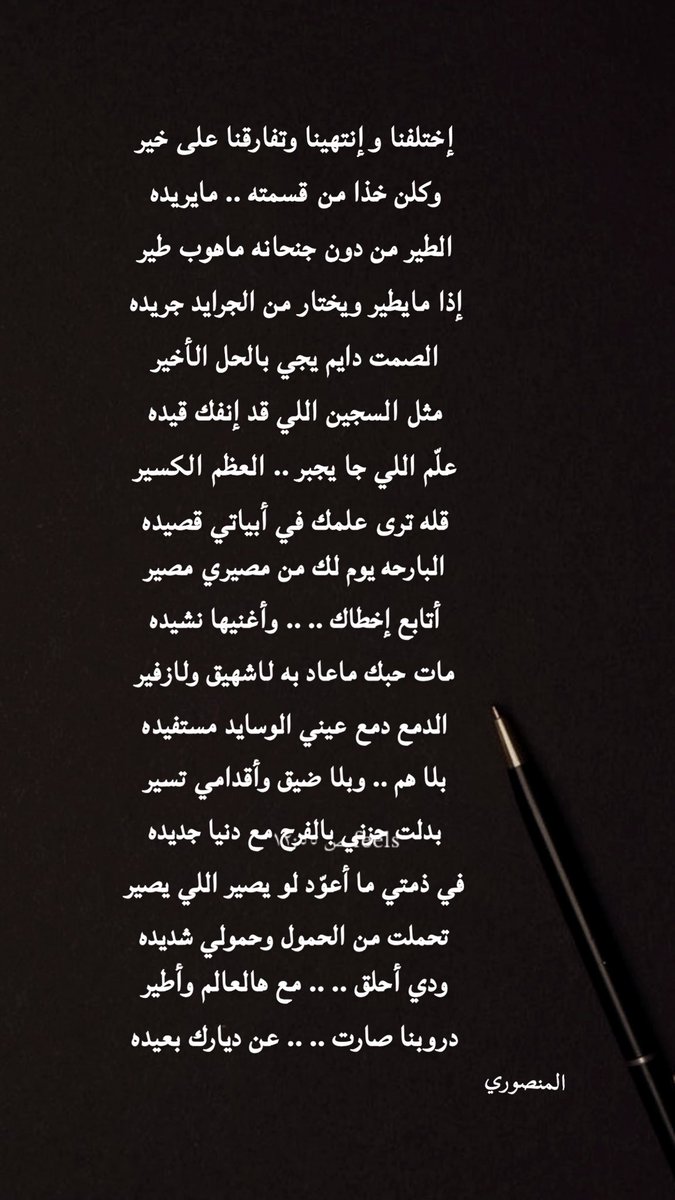 إختلفنا و إنتهينا وتفارقنا على خير
وكلن خذا من قسمته .. مايريده
الطير من دون جنحانه ماهوب طير
إذا مايطير ويختار من الجرايد جريده
الصمت دايم يجي بالحل الأخير
مثل السجين اللي قد إنفك قيده
علّم اللي جا يجبر .. العظم الكسير
قله ترى علمك في أبياتي قصيده
البارحه يوم لك من مصيري مصير
أتابع إخطاك .. .. وأغنيها نشيده
مات حبك ماعاد به لاشهيق ولازفير
الدمع دمع عيني الوسايد مستفيده
بلا هم .. وبلا ضيق وأقدامي تسير
بدلت حزني بالفرح مع دنيا جديده
في ذمتي ما أعوّد لو يصير اللي يصير
تحملت من الحمول وحمولي شديده
ودي أحلق .. .. مع هالعالم وأطير
دروبنا صارت .. .. عن ديارك بعيده
المنصوري